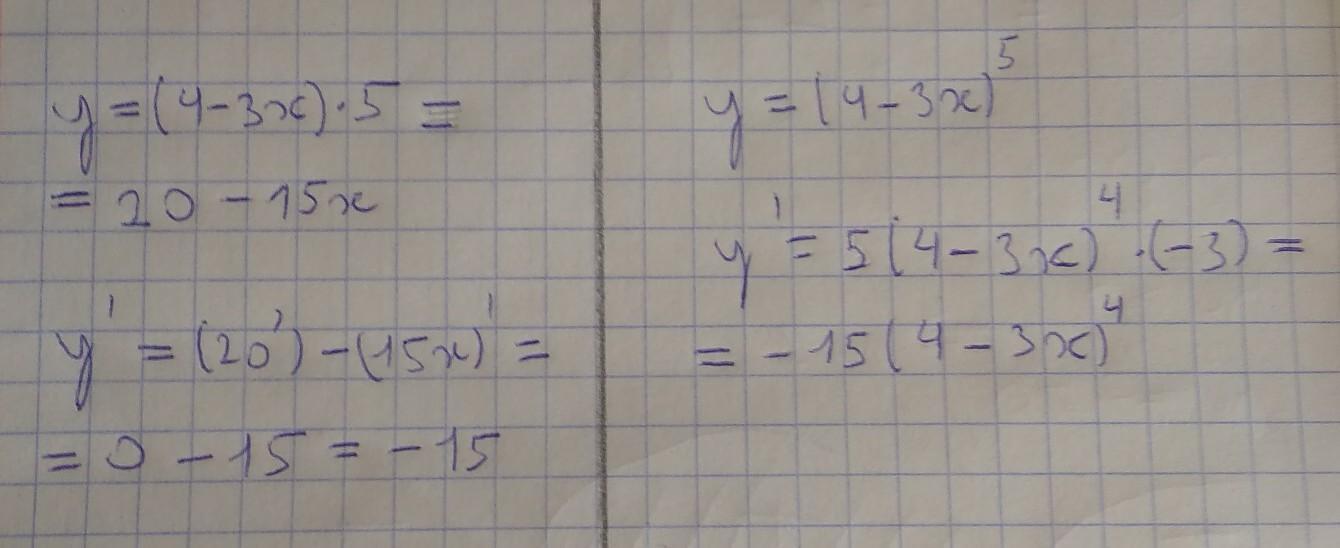 y = (4-3x)·5 =
= 20 - 15x
y' = (20') - (15x)' =
= 0 - 15 = -15
y = (4-3x)⁵
y' = 5(4-3x)⁴·(-3) =
= -15(4-3x)⁴